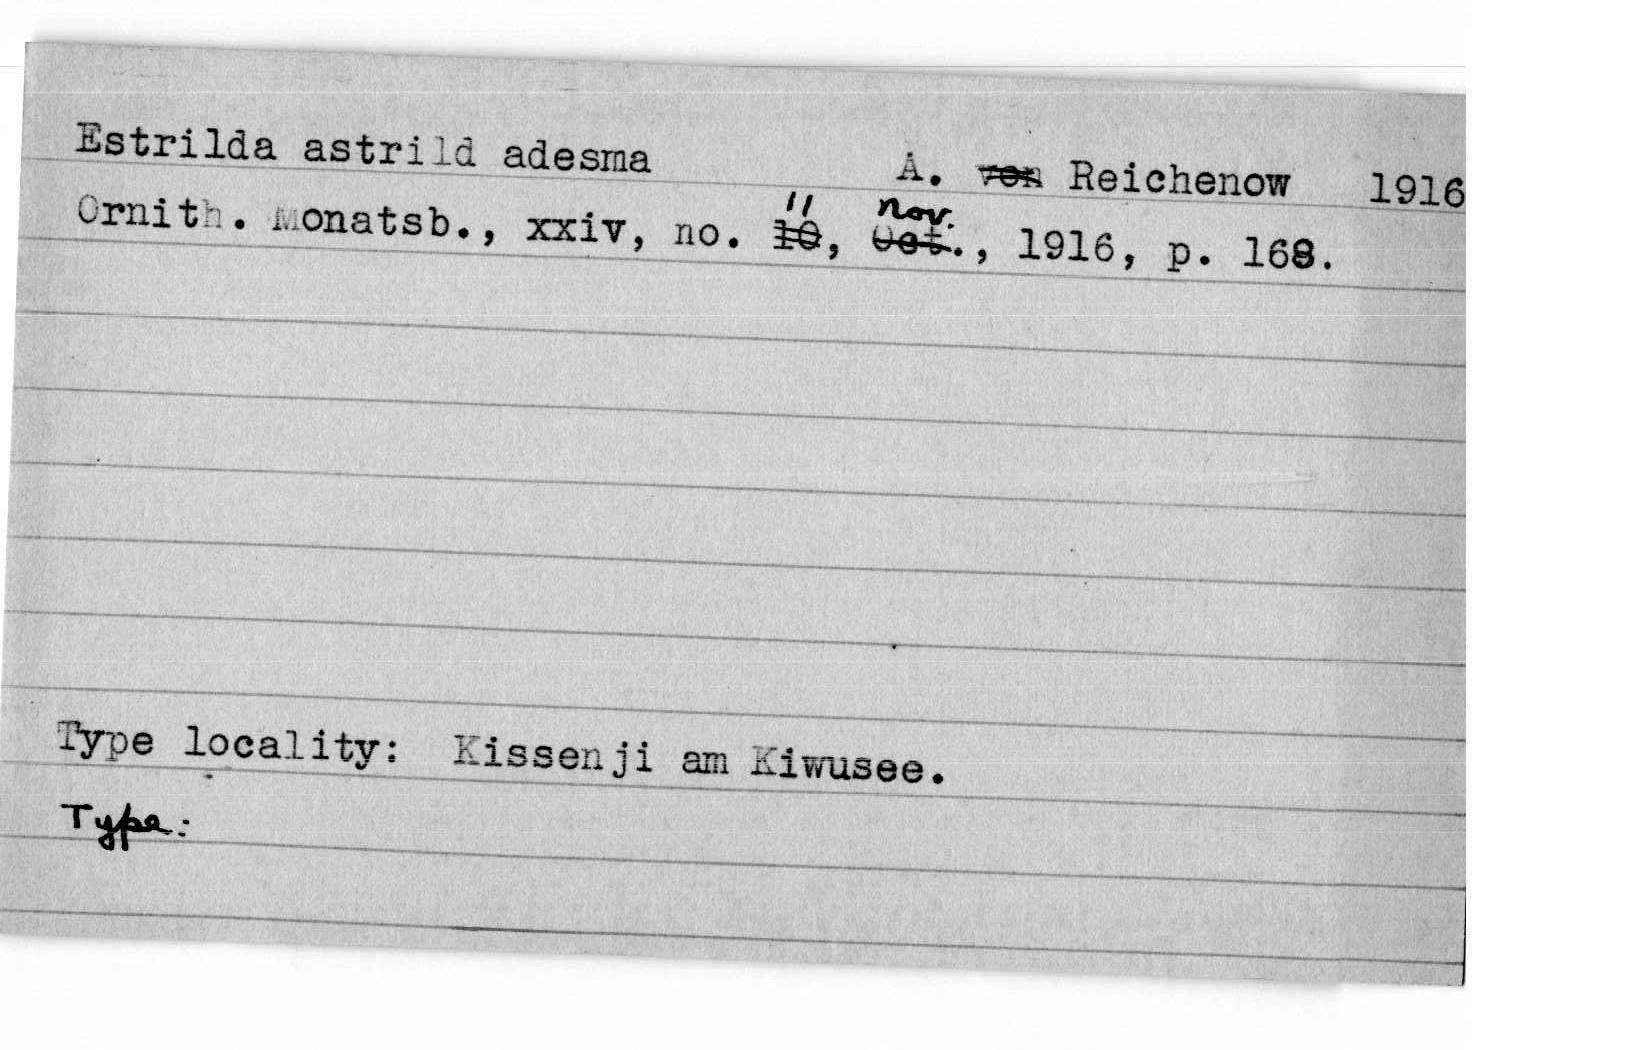 Estrilda astrild adesma A. von Reichenow 1916
11 Nov.
Ornith. Monatsb., xxiv, no. 10, Oct., 1916, p. 168.
Type locality: Kissenji am Kiwusee.
Type: